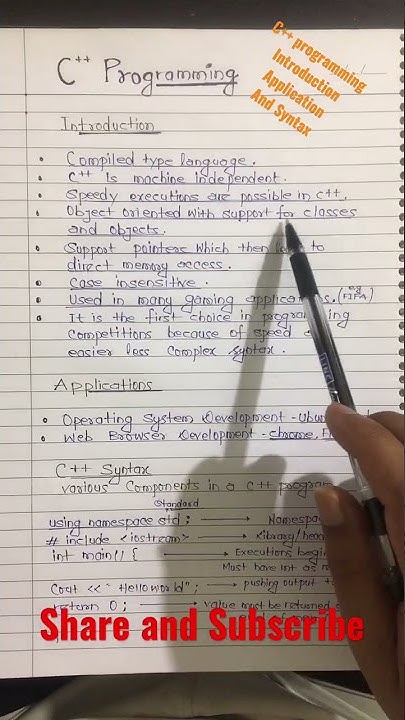 C++ programming
Introduction
Application
And Syntax
C++ Programming
Introduction
• Compiled type language.
• C++ is machine independent.
• Speedy executions are possible in C++.
• Object oriented with support for classes
and objects.
• Support pointers which then to
direct memory access.
• Case insensitive.
• Used in many gaming applications. (eg FIFA)
• It is the first choice in programming
competitions because of speed
easier less complex syntax.
Applications
• Operating System Development -
• Web Browser Development - Chrome,
C++ Syntax
various Components in a C++
Standard
using namespace std; →
# include <iostream> → Library/
int main() { → Executions
Must have int as
Cout << "Hello world"; → pushing output
return 0; → value must be returned
Share and Subscribe